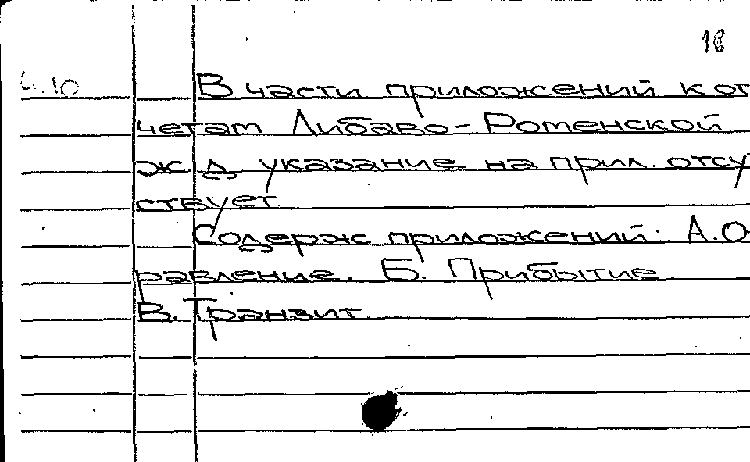 18
4.10 В части приложений к от
четам Либаво-Роменской
ж д указание на прил. отсу
ствует
Содерж приложений: А.О
равление. Б. Прибытие
В. Транзит.